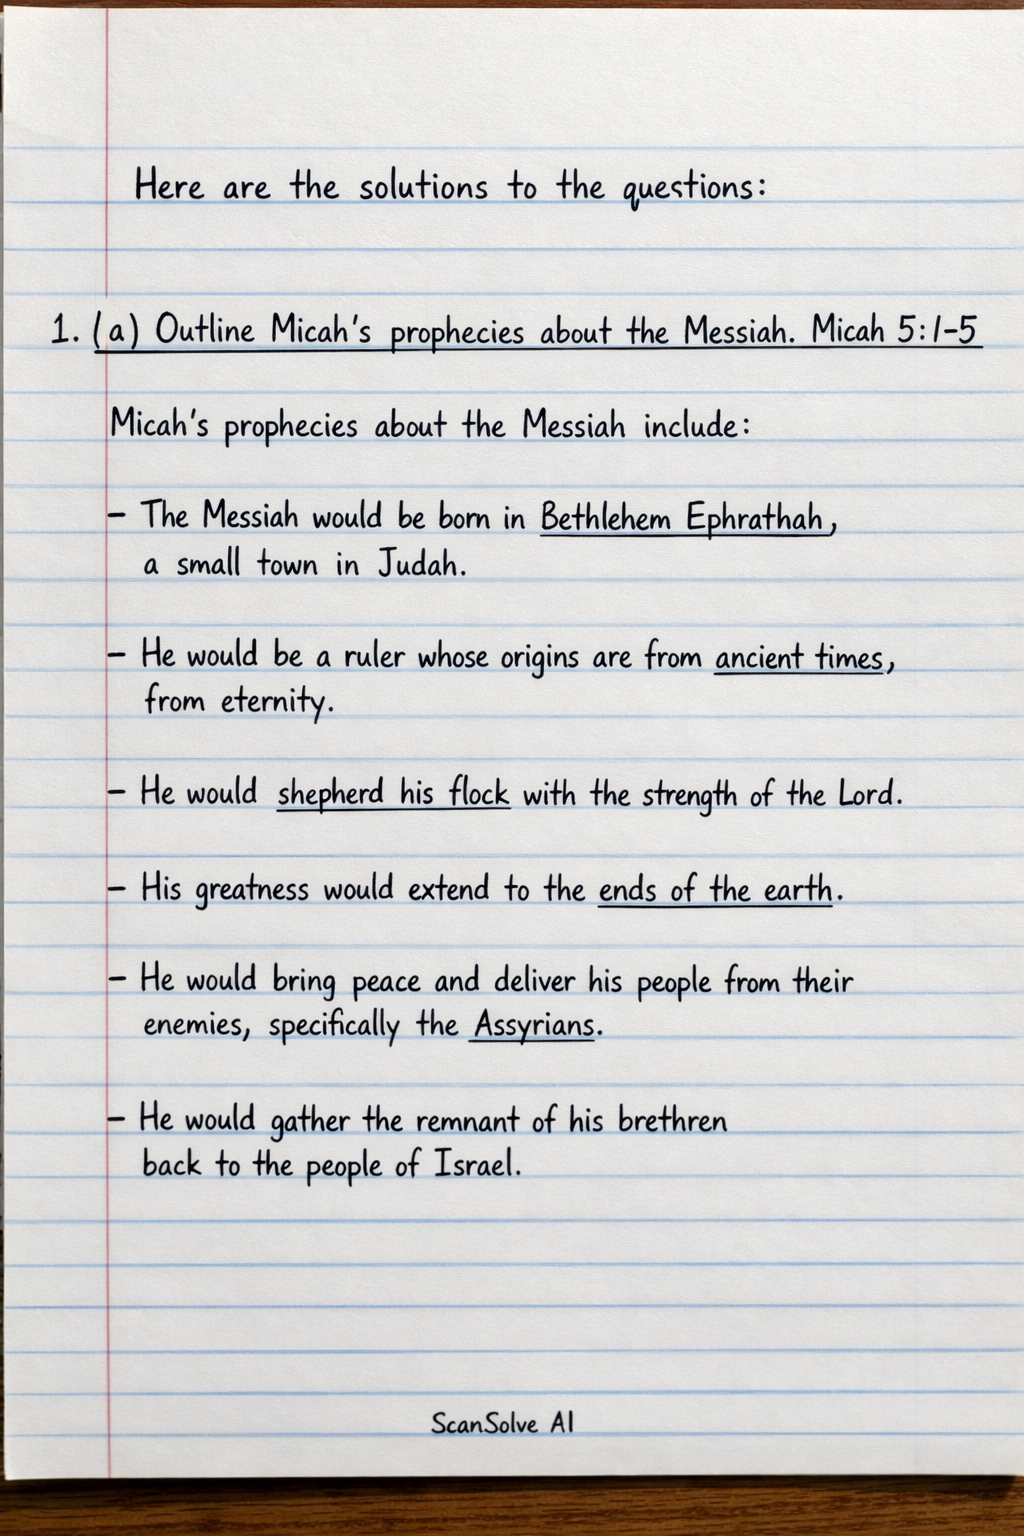 Here are the solutions to the questions:
1. (a) Outline Micah's prophecies about the Messiah. Micah 5:1-5
Micah's prophecies about the Messiah include:
– The Messiah would be born in Bethlehem Ephrathah,
a small town in Judah.
– He would be a ruler whose origins are from ancient times,
from eternity.
– He would shepherd his flock with the strength of the Lord.
– His greatness would extend to the ends of the earth.
– He would bring peace and deliver his people from their
enemies, specifically the Assyrians.
– He would gather the remnant of his brethren
back to the people of Israel.
ScanSolve AI